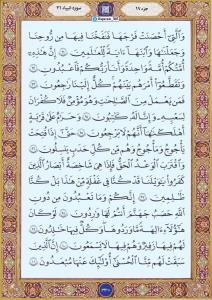 جزء ۱۷
سوره انبیاء ۲۱
وَٱلَّتِيٓ أَحۡصَنَتۡ فَرۡجَهَا فَنَفَخۡنَا فِيهَا مِن رُّوحِنَا
وَجَعَلۡنَٰهَا وَٱبۡنَهَآ ءَايَةٗ لِّلۡعَٰلَمِينَ ۝ إِنَّ هَٰذِهِۦٓ
أُمَّتُكُمۡ أُمَّةٗ وَٰحِدَةٗ وَأَنَا۠ رَبُّكُمۡ فَٱعۡبُدُونِ ۝
وَتَقَطَّعُوٓاْ أَمۡرَهُم بَيۡنَهُمۡۖ كُلٌّ إِلَيۡنَا رَٰجِعُونَ ۝
فَمَن يَعۡمَلۡ مِنَ ٱلصَّٰلِحَٰتِ وَهُوَ مُؤۡمِنٞ فَلَا كُفۡرَانَ
لِسَعۡيِهِۦ وَإِنَّا لَهُۥ كَٰتِبُونَ ۝ وَحَرَٰمٌ عَلَىٰ قَرۡيَةٍ
أَهۡلَكۡنَٰهَآ أَنَّهُمۡ لَا يَرۡجِعُونَ ۝ حَتَّىٰٓ إِذَا فُتِحَتۡ
يَأۡجُوجُ وَمَأۡجُوجُ وَهُم مِّن كُلِّ حَدَبٖ يَنسِلُونَ ۝
وَٱقۡتَرَبَ ٱلۡوَعۡدُ ٱلۡحَقُّ فَإِذَا هِيَ شَٰخِصَةٌ أَبۡصَٰرُ ٱلَّذِينَ
كَفَرُواْ يَٰوَيۡلَنَا قَدۡ كُنَّا فِي غَفۡلَةٖ مِّنۡ هَٰذَا بَلۡ كُنَّا
ظَٰلِمِينَ ۝ إِنَّكُمۡ وَمَا تَعۡبُدُونَ مِن دُونِ
ٱللَّهِ حَصَبُ جَهَنَّمَ أَنتُمۡ لَهَا وَٰرِدُونَ ۝ لَوۡ كَانَ
هَٰٓؤُلَآءِ ءَالِهَةٗ مَّا وَرَدُوهَاۖ وَكُلّٞ فِيهَا خَٰلِدُونَ ۝
لَهُمۡ فِيهَا زَفِيرٞ وَهُمۡ فِيهَا لَا يَسۡمَعُونَ ۝ إِنَّ ٱلَّذِينَ
سَبَقَتۡ لَهُم مِّنَّا ٱلۡحُسۡنَىٰٓ أُوْلَٰٓئِكَ عَنۡهَا مُبۡعَدُونَ ۝